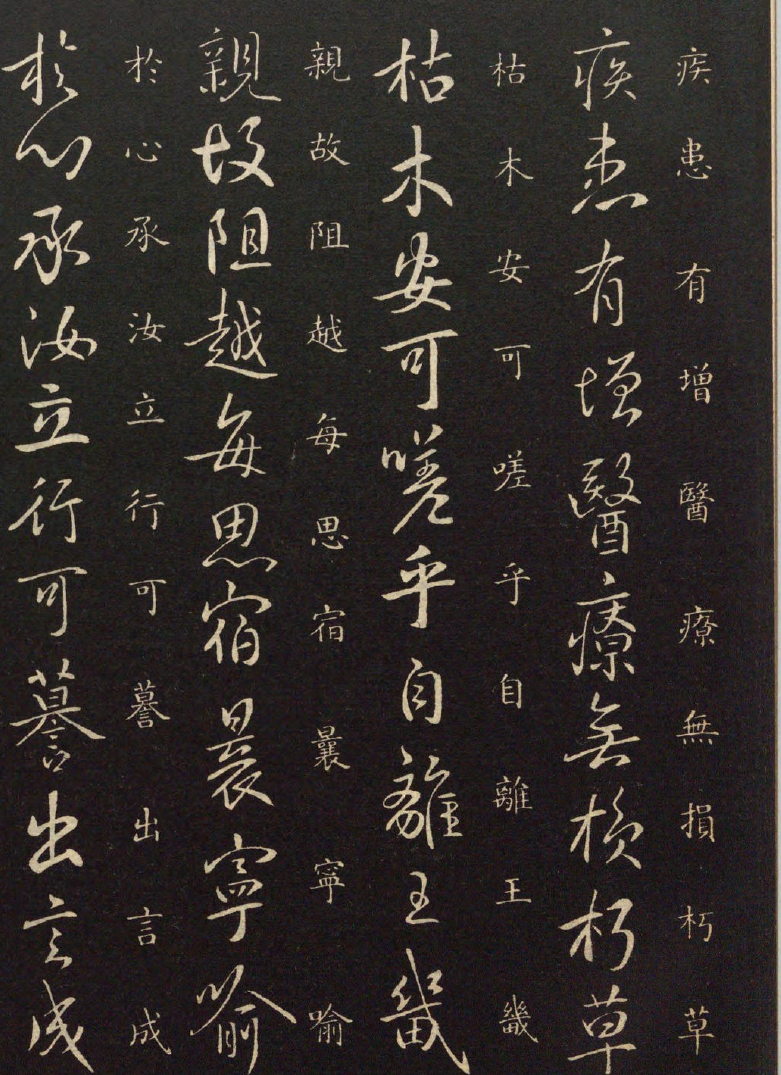 疾患有增醫療無損朽草
疾患有增醫療無損朽草
枯木安可嗟乎自離王畿
枯木安可嗟乎自離王畿
親故阻越每思宿曩寧喻
親故阻越每思宿曩寧喻
於心承汝立行可謩出言成
於心承汝立行可謩出言成